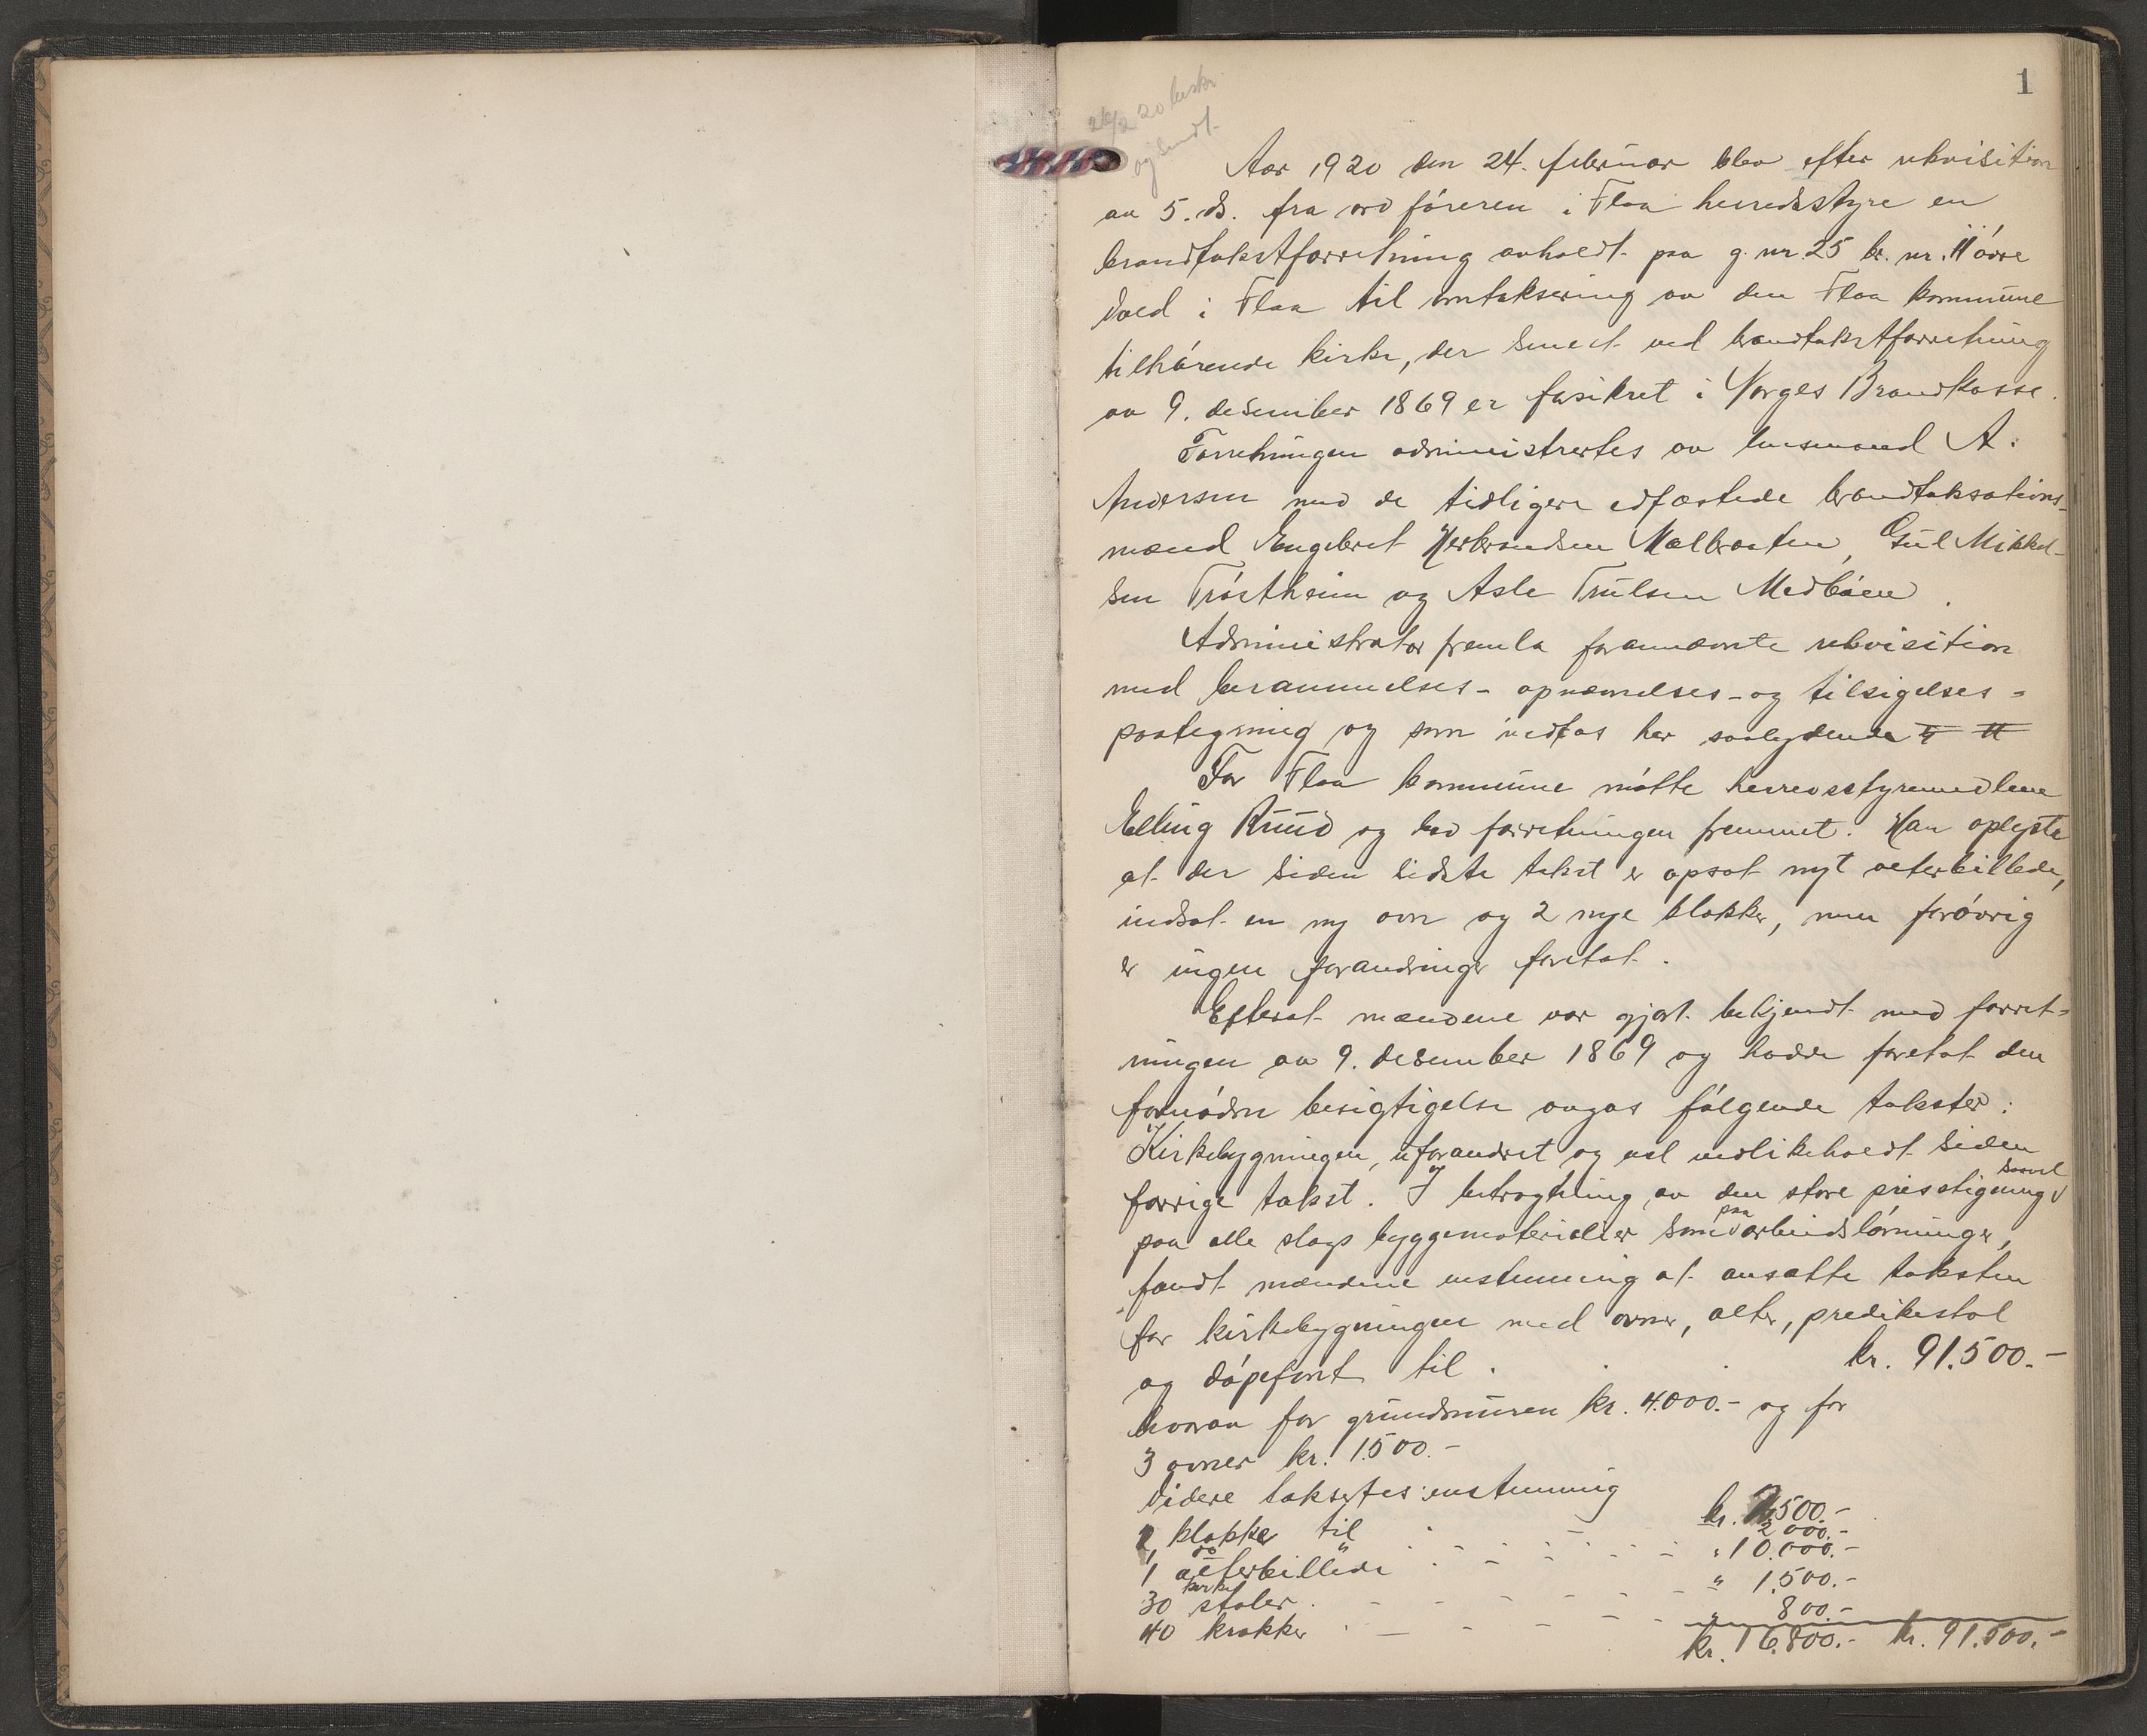 1
26/2 20 beskr.
og sendt.
Aar 1920 den 24. februar blev efter rekvisition
av 5. ds. fra ordføreren i Flaa herredsstyre en
brandtakstforretning avholdt paa g. nr. 25 br. nr. 11 øvre
Vold i Flaa til omtaksering av den Flaa kommune
tilhørende kirke, der senest ved brandtakstforretning
av 9. desember 1869 er forsikret i Norges Brandkasse.
Forretningen administrertes av lensmand A.
Andersen med de tidligere edfæstede brandtaksations-
mænd Engebret Herbrandsen Mælbraaten, Gul Mikkel-
sen Trøstheim og Asle Trulsen Medbøen.
Administrator fremla forannævnte rekvisition
med berammelses- opnævnelses- og tilsigelses-
paategning og som indtas her saalydende
For Flaa kommune møtte herredsstyremedlem
Elling Ruud og bad forretningen fremmet. Han oplyste
at der siden sidste takst er opsat nyt alterbillede,
indsat en ny ovn og 2 nye klokker, men forøvrig
er ingen forandringer foretat.
Efterat mændene var gjort bekjendt med forret-
ningen av 9. desember 1869 og hadde foretat den
fornødne besigtigelse avgas følgende takster:
Kirkebygningen, uforandret og vel vedlikeholdt siden
forrige takst. I betragtning av den store prisstigning saavel
paa alle slags byggematerialier som paa arbeidslønninger,
fandt mændene enstemmig at ansætte taksten
for kirkebygningen med ovner, alter, prædikestol
og døpefont til . . . kr. 91.500.-
hvorav for grundmuren kr. 4.000.- og for
3 ovner kr. 1.500.-
Videre taksertes enstemmig
1 klokke til . kr. 2500.-
1 do " 2000.-
1 alterbillede " 10.000.-
30 kirkestoler . " 1.500.-
40 krakker . " 800.-
kr. 16.800.- kr. 91.500.-